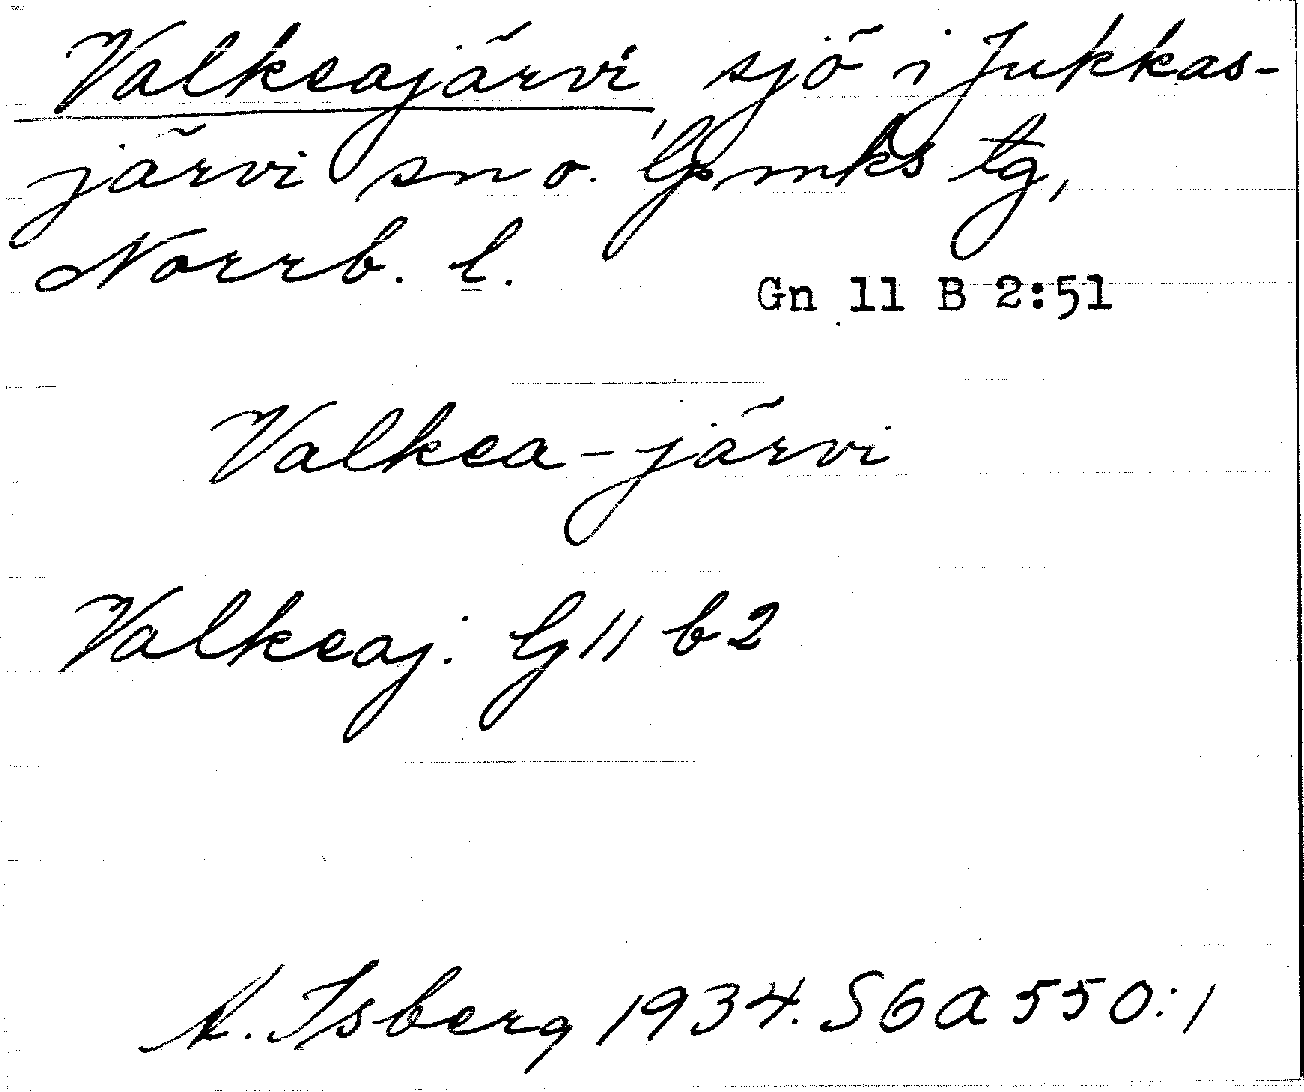 Valkeajärvi, sjö i Jukkas-
järvi sn o. lpmks tg,
Norrb. l.
Gn 11 B 2:51
Valkea-järvi
Valkeaj. G 11 b 2
A. Isberg 1934. S6A 550:1